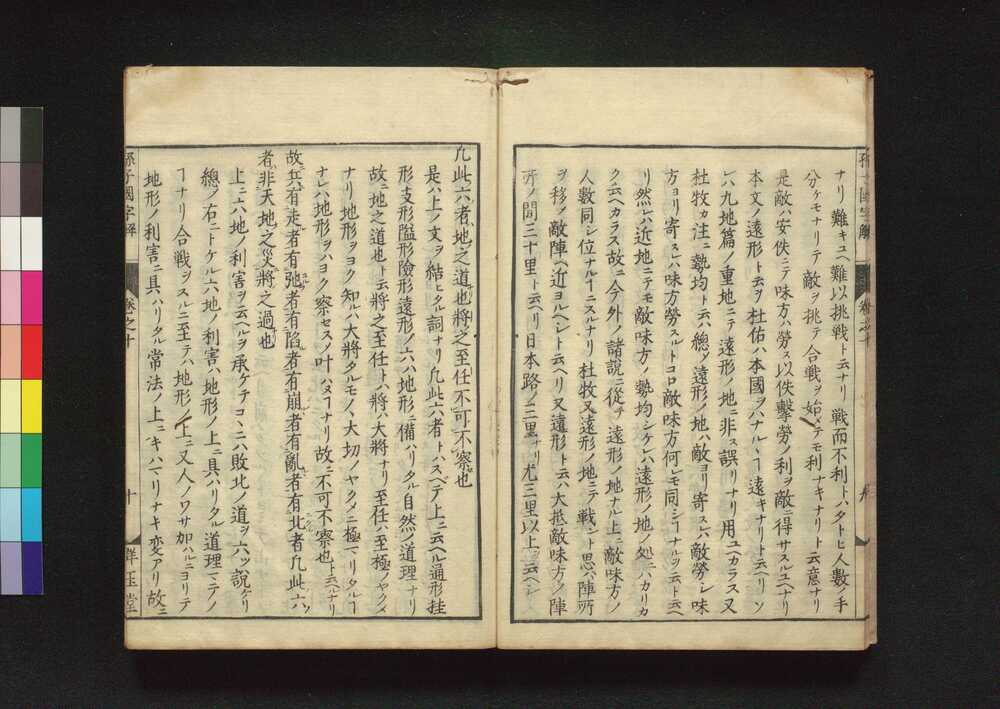 ナリ難キニヘ難以挑戦ト云ナリ戦而不利トハタトヒ人数ノ手
分ケモナリテ敵ヲ挑テ合戦ヲ始メテモ利ナキナリト云意ナリ
是敵ハ安佚ニテ味方ハ勞ス以佚擊勞ノ利ヲ敵ニ得サスルユヘナリ
本文ノ遠形ト云ヲ杜佑ハ本國ヲハナルヽヿ遠キナリト云ヘリソ
レハ九地篇ノ重地ニテ遠形ノ地ニ非ス誤リナリ用ユヘカラス又
杜牧カ注ニ勢均ト云ハ總ノ遠形ノ地ハ敵ヨリ寄スレハ敵勞シ味
方ヨリ寄スレハ味方勞スルトコロ敵味方何レモ同シヿナルヲ云ト云ヘ
リ然レハ近地ニテモ敵味方ノ勢均シケレハ遠形ノ地ノ処ニハカリカ
ク云ヘカラス故ニ今外ノ諸説ニ從テ遠形ノ地ナル上ニ敵味方ノ
人數同シ位ナルヿニスルナリ杜牧又遠形ノ地ニテ戦ント思ハ陣所
ヲ移メ敵陣ヘ近ヨルヘシト云ヘリ又遠形ト云ハ大抵敵味方ノ陣
所ノ間三十里ト云ヘリ日本路ノ三里ナリ尤三里以上ヲ云ヘシ
孫子國字解
卷之十
凢此六者地之道也將之至任不可不察也
是ハ上ノ文ヲ結ヒタル詞ナリ凢此六者トハスベテ上ニ云ヘル通形挂
形支形隘形險形遠形ノ六ハ地形ニ備ハリタル自然ノ道理ナリ
故ニ地之道也ト云將之至任トハ將ハ大將ナリ至任ハ至極ノヤクメ
ナリ地形ヲヨク知ルハ大將タルモノヽ大切ノヤクメニ極マリタルヿ
ナレハ地形ヲハヨク察セスノ叶ハヌヿナリ故ニ不可不察也ト云ナリ
故兵有走者有弛者有陷者有崩者有亂者有北者凢此六
者非天地之災將之過也
上ニ六地ノ利害ヲ云ヘルヲ承ケテコヽニハ敗北ノ道ヲ六ツ說ケリ
總ノ右ニトケル六地ノ利害ハ地形ノ上ニ具ハリタル道理マテノ
ヿナリ合戦ヲスルニ至テハ地形ノ上ニ又人ノワサ加ハルニヨリテ
地形ノ利害ニ具ハリタル常法ノ上ニキハマリナキ変アリ故ニ
孫子國字解
卷之十
十
祥玉堂